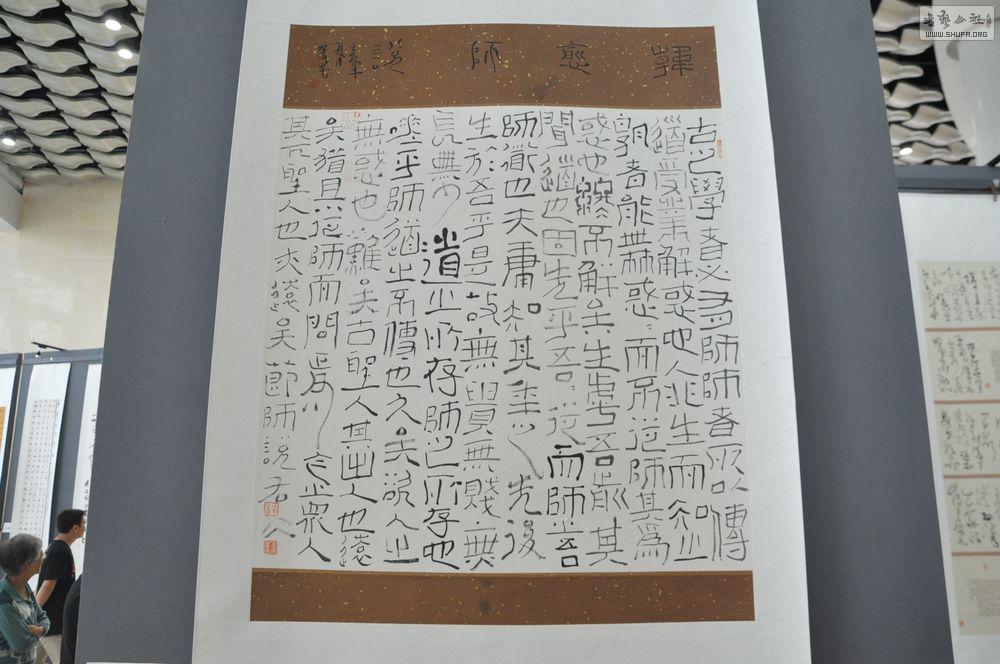 韓愈師說
古之學者必有師師者所以傳
道受業解惑也人非生而知之
孰者能無惑:而不從師其為
惑也終不解矣生虖吾前其
聞道也固先乎吾從而師吾
師道也夫庸知其年之先後
生於吾乎是故無貴無賤無
長無少道之所存師之所存也
嗟乎師道之不傳也久矣欲人之
無惑也難矣古聖人其出人也遠
矣猶且從師而問焉今之衆人
其下聖人也夫遠矣節師說
WWW.SHUFA.ORG